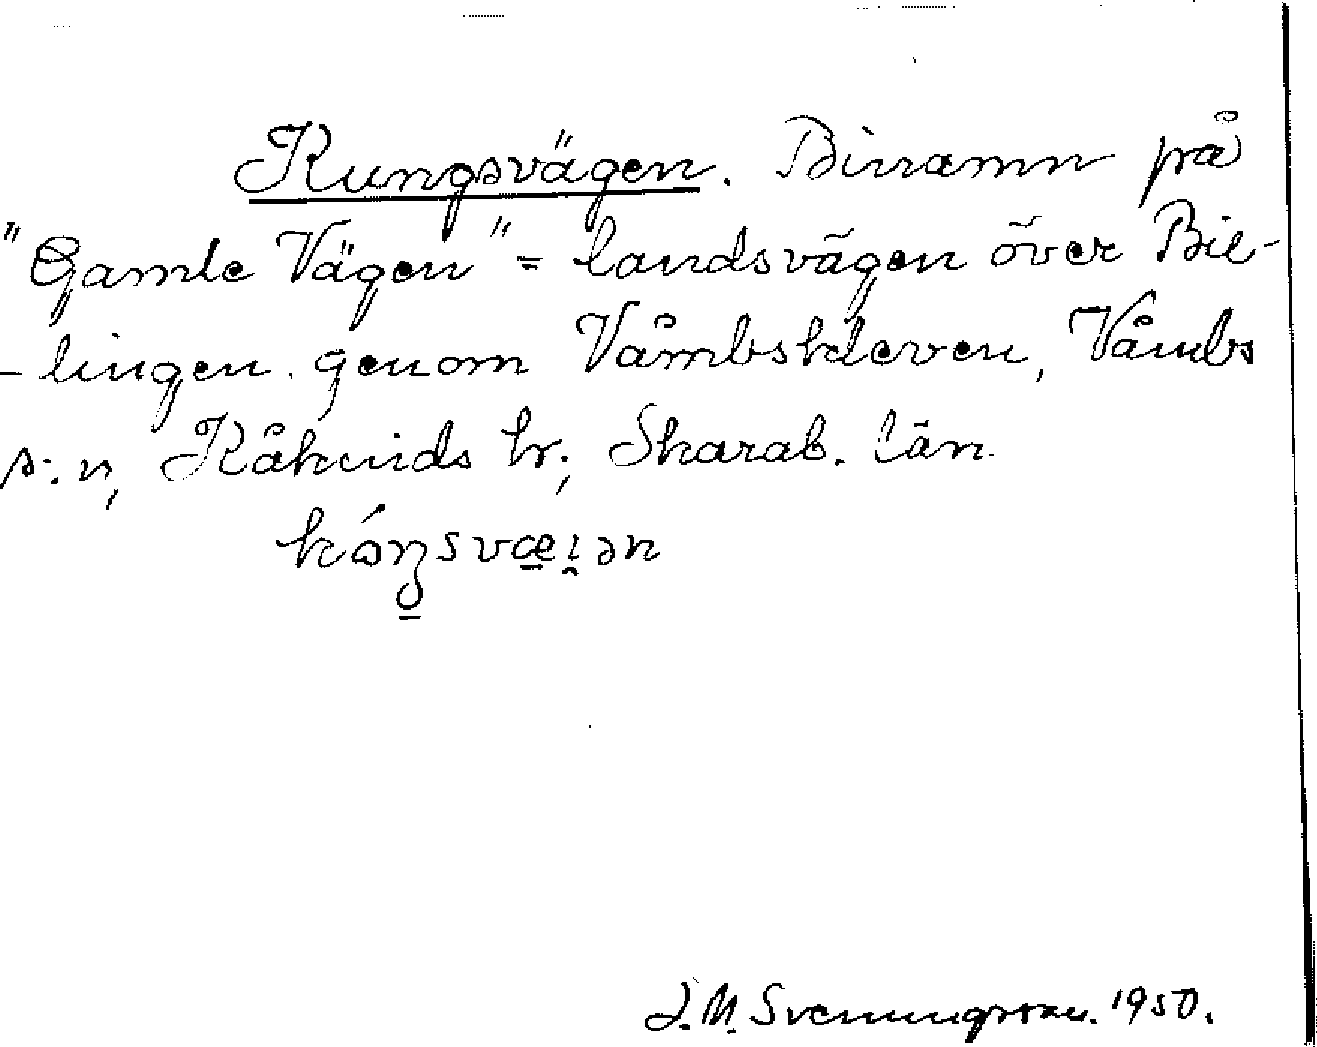 Kungsvägen. Binamn på
"Gamle Vägen" = landsvägen över Bil-
lingen genom Våmbskleven, Våmbs
s:n, Kåkinds hr, Skarab. län.
J. M. Svenningsson. 1950.